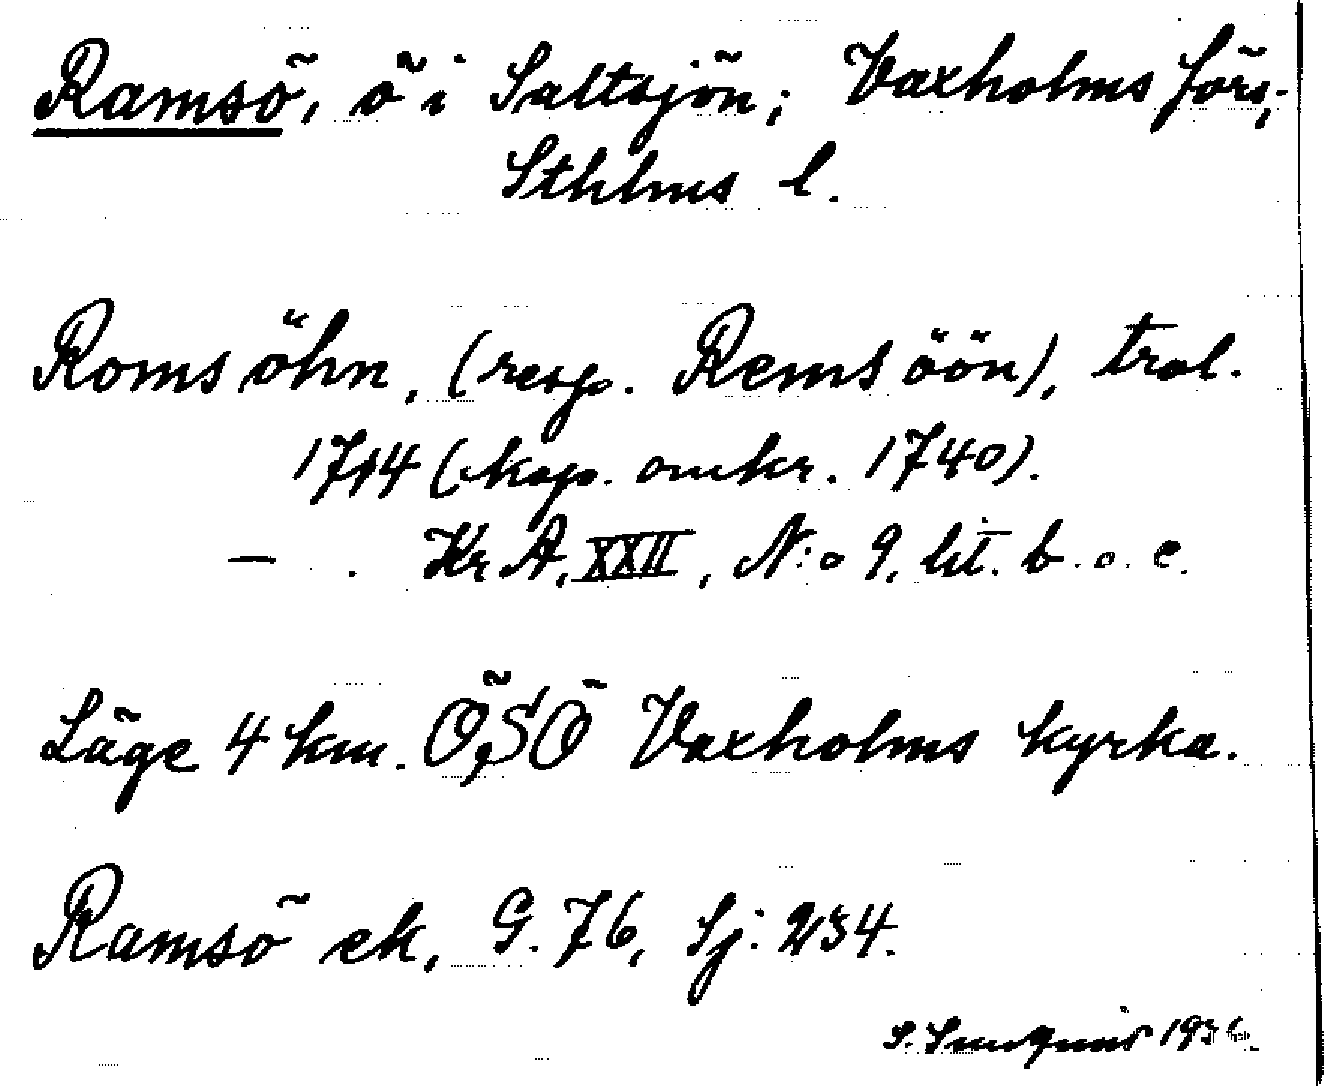 Ramsö, ö i Saltsjön; Vaxholms förs.;
Sthlms l.
Romsöhn, (resp. Remsöön), trol.
1714 (kop. omkr. 1740).
— . Kr A, XXII, N:o 9, lit. b. o. c.
Läge 4 km. Ö,SÖ Vaxholms kyrka.
Ramsö ek, G. 76, Sj: 234.
S.